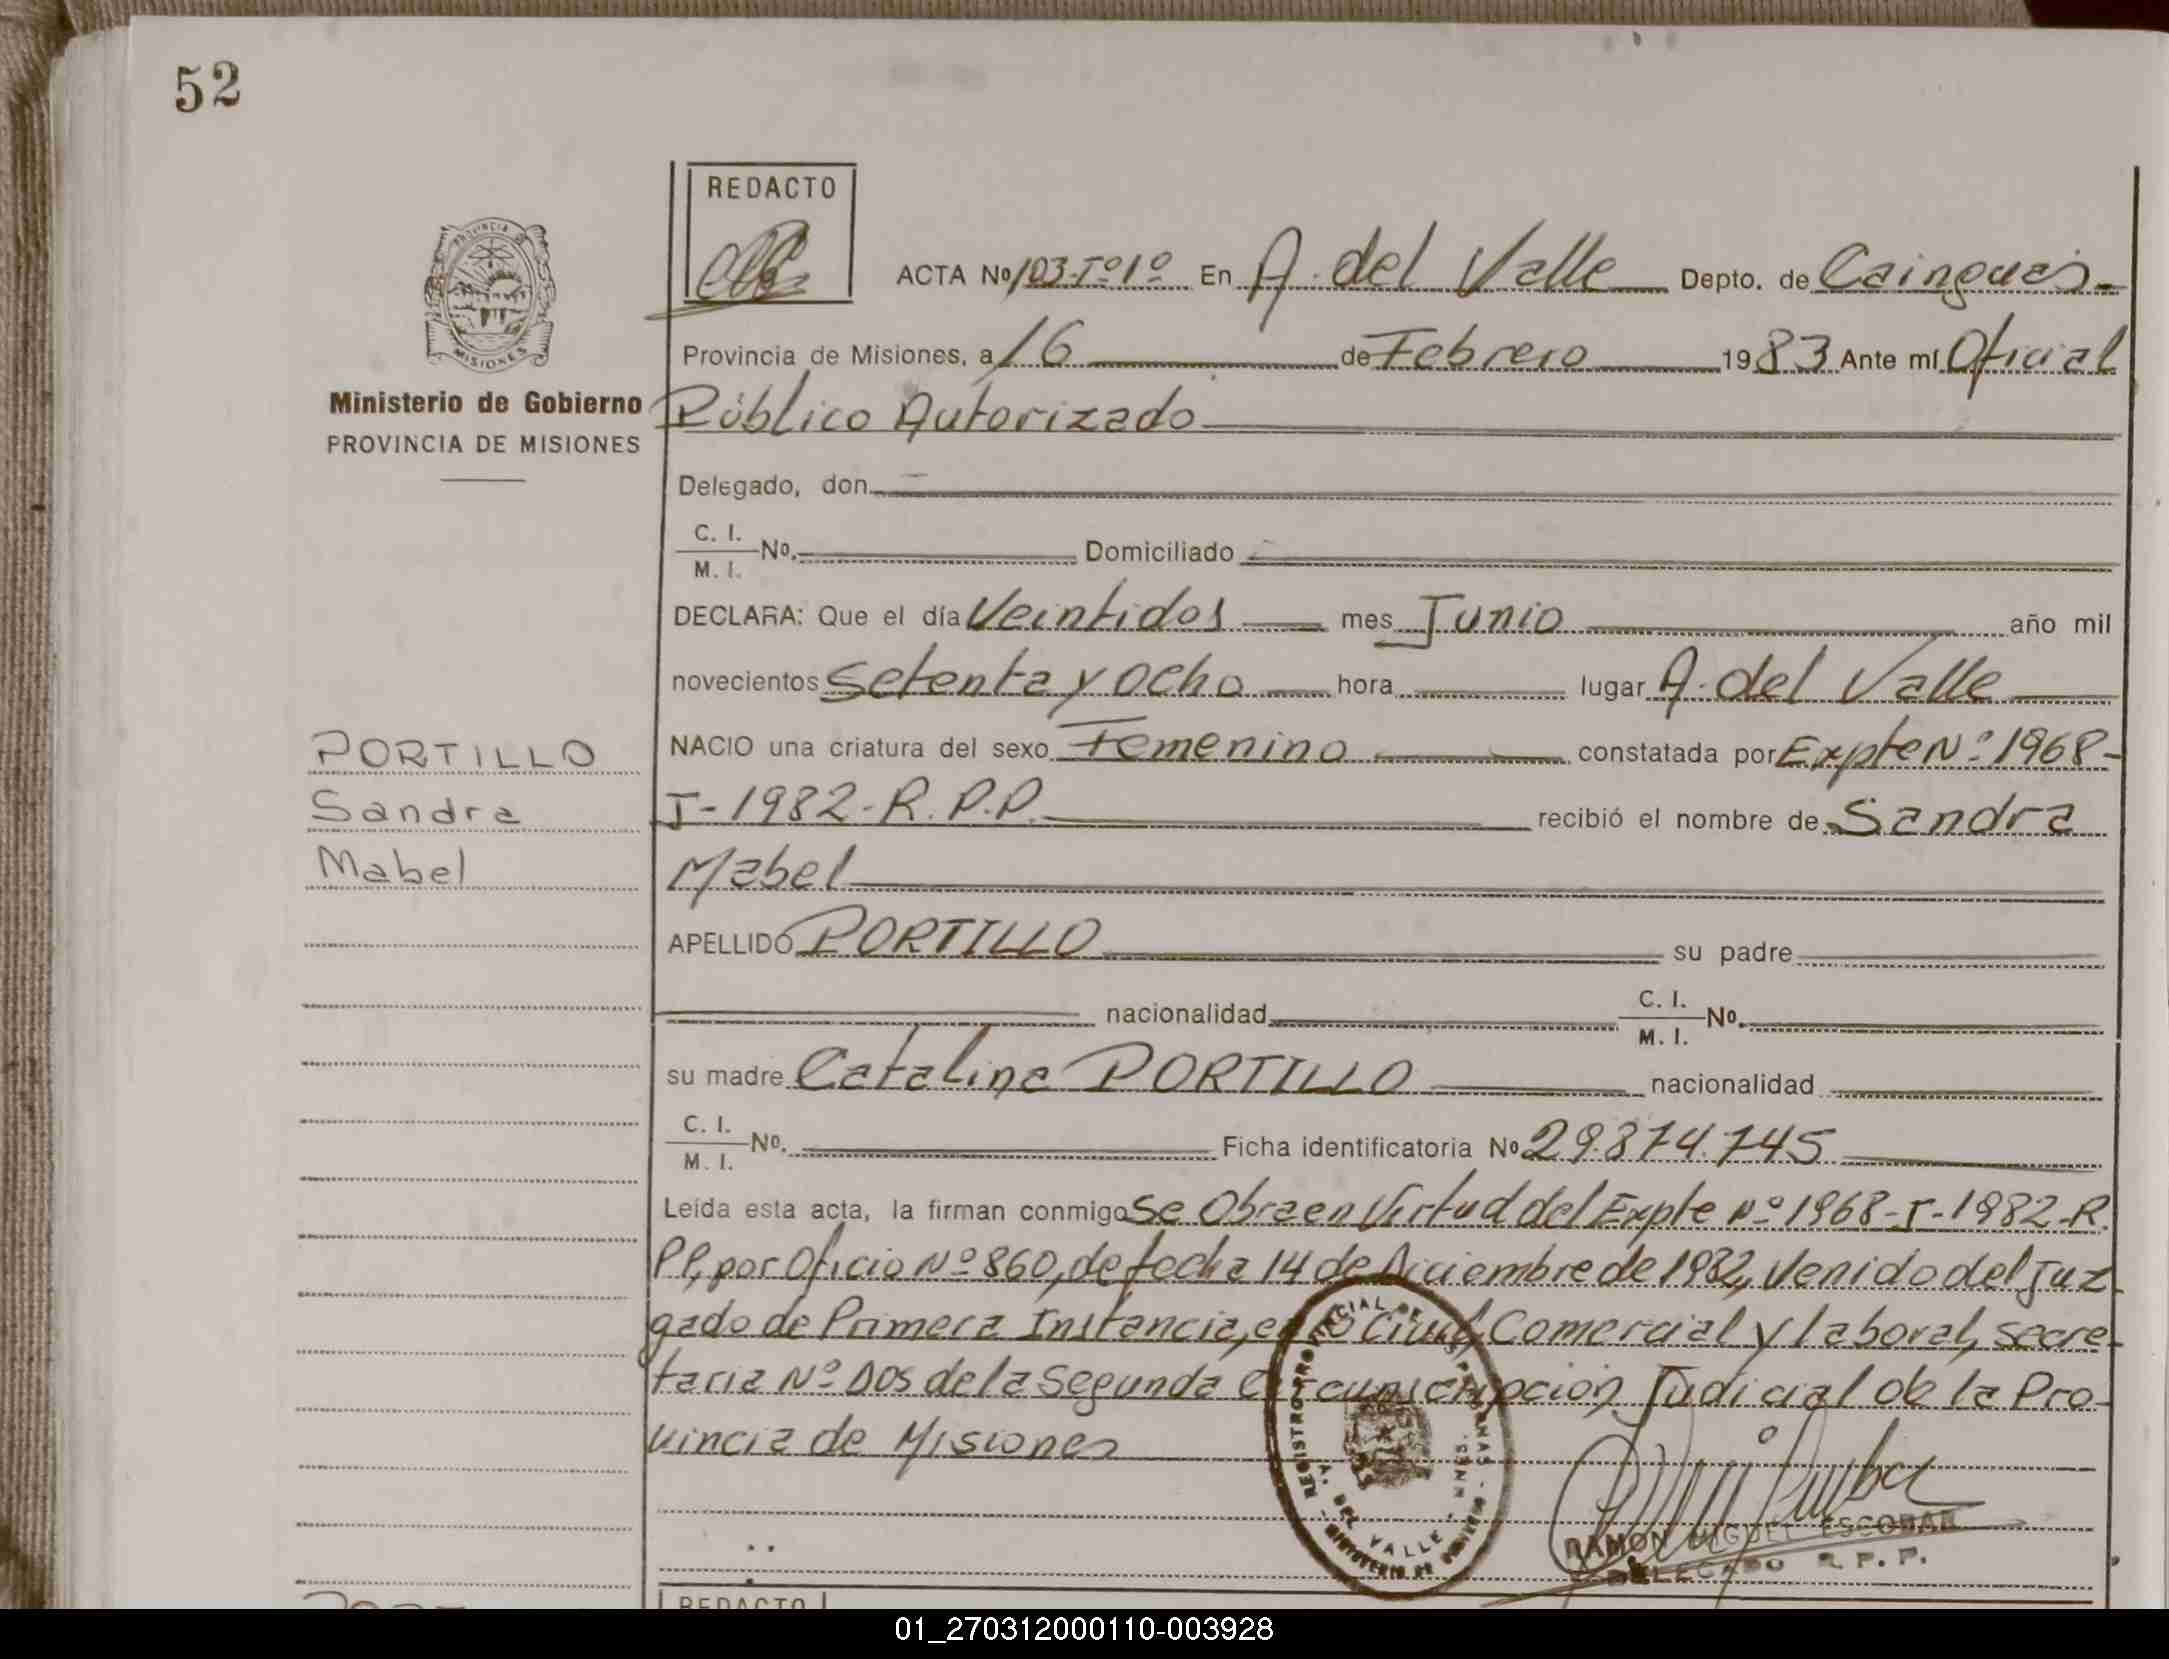 52
REDACTO
PROVINCIA DE
MISIONES
Ministerio de Gobierno
PROVINCIA DE MISIONES
ACTA Nº 103-Tº1º En A. del Valle Depto. de Cainguás
Provincia de Misiones, a 16 de Febrero 1983 Ante mí Oficial
Público Autorizado
Delegado, don
C. I.
M. I. Nº. Domiciliado
DECLARA: Que el día Veintidos mes Junio año mil
novecientos setenta y ocho hora lugar A. del Valle
NACIO una criatura del sexo Femenino constatada por Expte Nº 1968-
J-1982-R.P.P. recibió el nombre de Sandra
Mabel
APELLIDO PORTILLO su padre
nacionalidad C. I.
M. I. Nº.
su madre Catalina PORTILLO nacionalidad
C. I.
M. I. Nº. Ficha identificatoria Nº 29.874.745
Leída esta acta, la firman conmigo Se Obra en Virtud del Expte Nº 1968-J-1982-R.
PP, por Oficio Nº 860, de fecha 14 de Diciembre de 1982, Venido del Juz-
gado de Primera Instancia, en lo Civil, Comercial y laboral, secre-
taria Nº DOS de la Segunda Circunscripción Judicial de la Pro-
vincia de Misiones
PORTILLO
Sandra
Mabel
REGISTRO PROVINCIAL DE LAS PERSONAS
A. DEL VALLE - MNES.
MINISTERIO DE GOBIERNO
RAMON MIGUEL ESCOBAR
DELEGADO R. P. P.
REDACTO
01_270312000110-003928